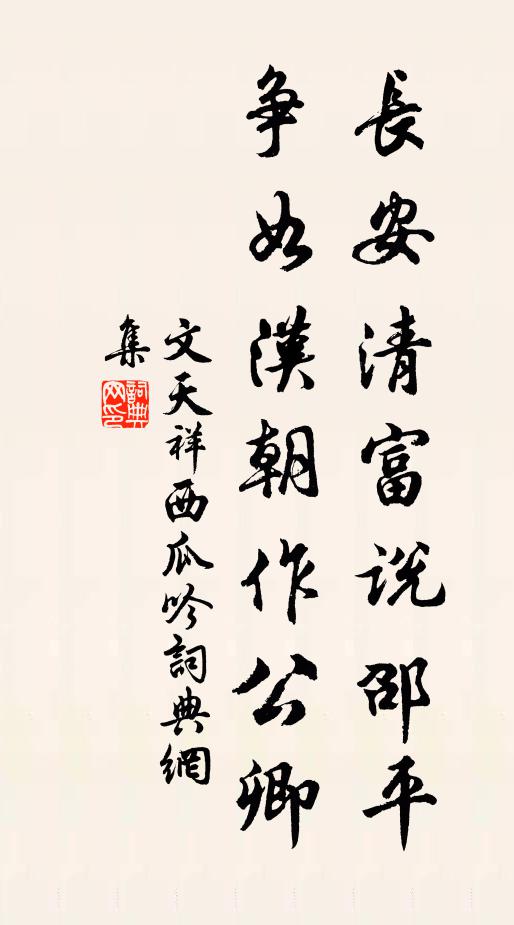 長安清富説邵平
争如漢朝作公卿
文天祥西瓜吟詞典網
集
詞典網印